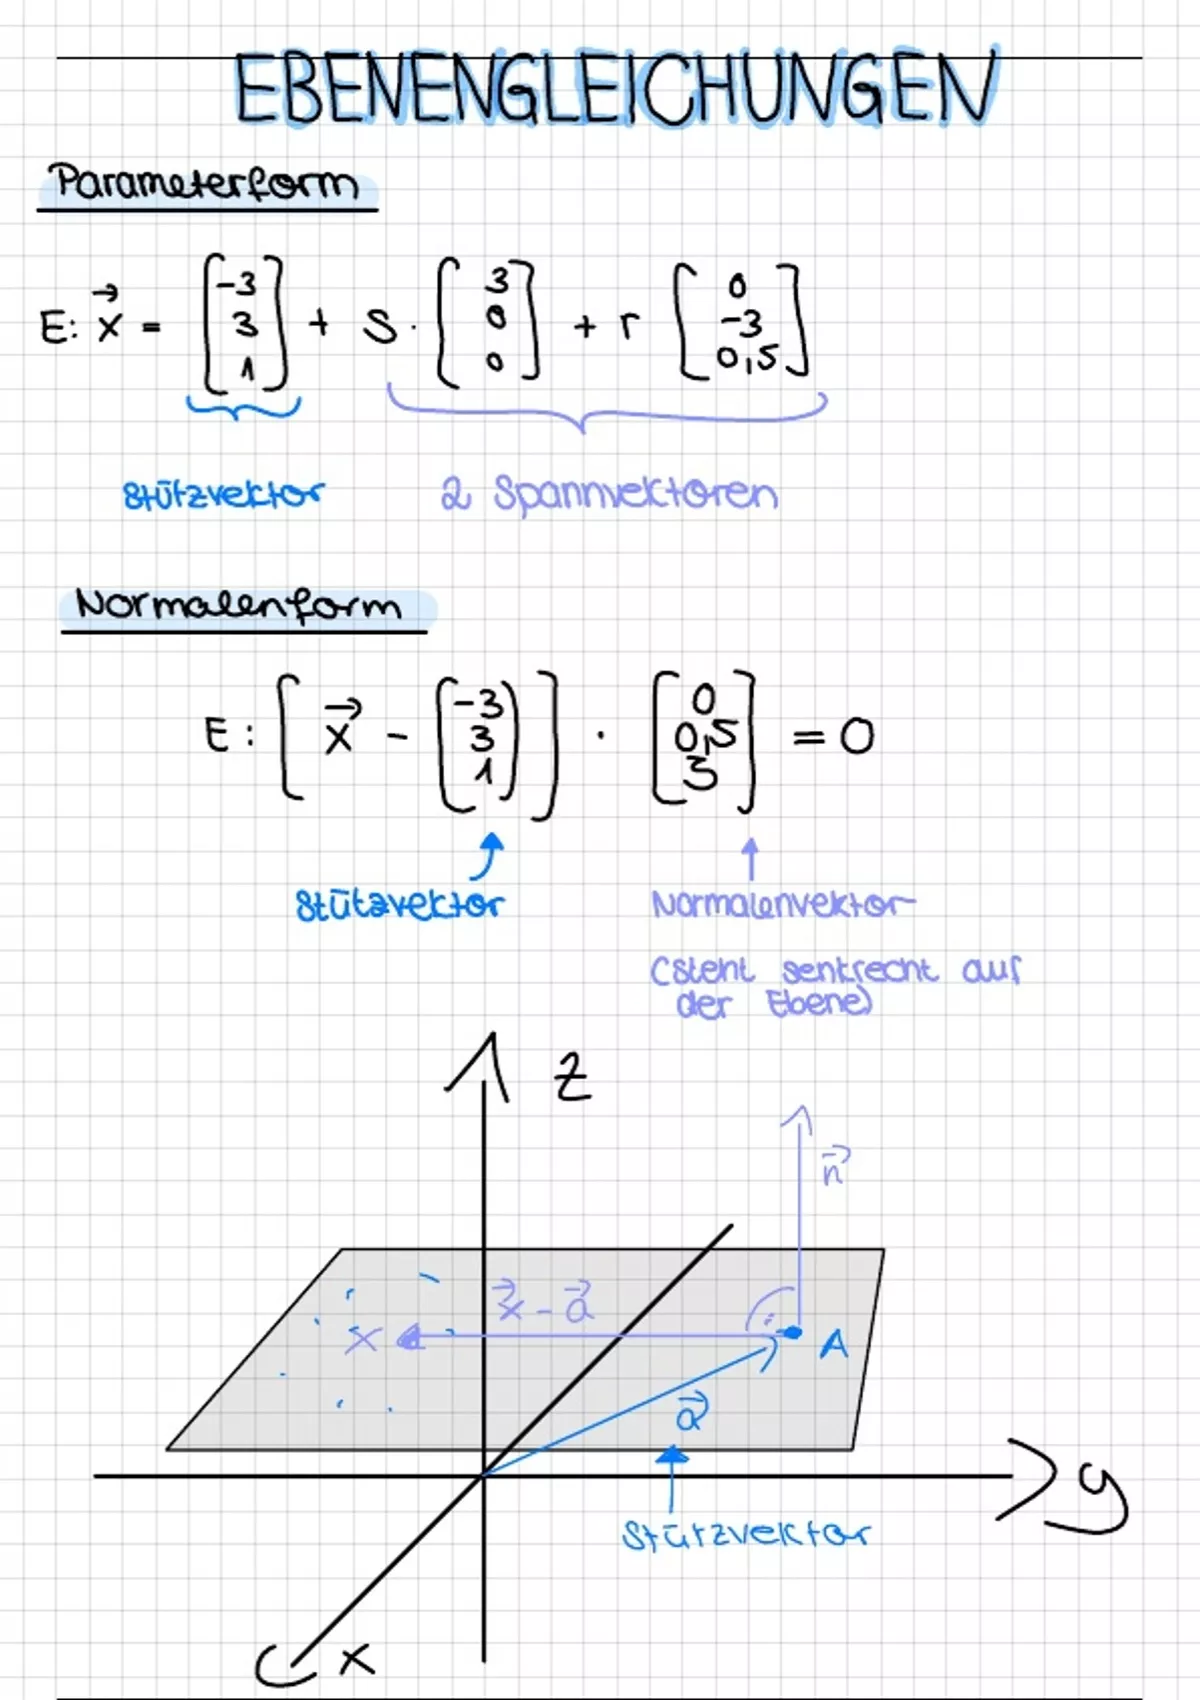 EBENENGLEICHUNGEN
Parameterform
E: x⃗ = [-3 3 1] + s · [3 0 0] + r [0 -3 0,5]
Stützvektor 2 Spannvektoren
Normalenform
E: [x⃗ - [-3 3 1]] · [0 0,5 3] = 0
Stützvektor Normalenvektor
(steht senkrecht auf
der Ebene)
z
n⃗
x⃗ - a⃗
X A
a⃗
y
Stützvektor
x